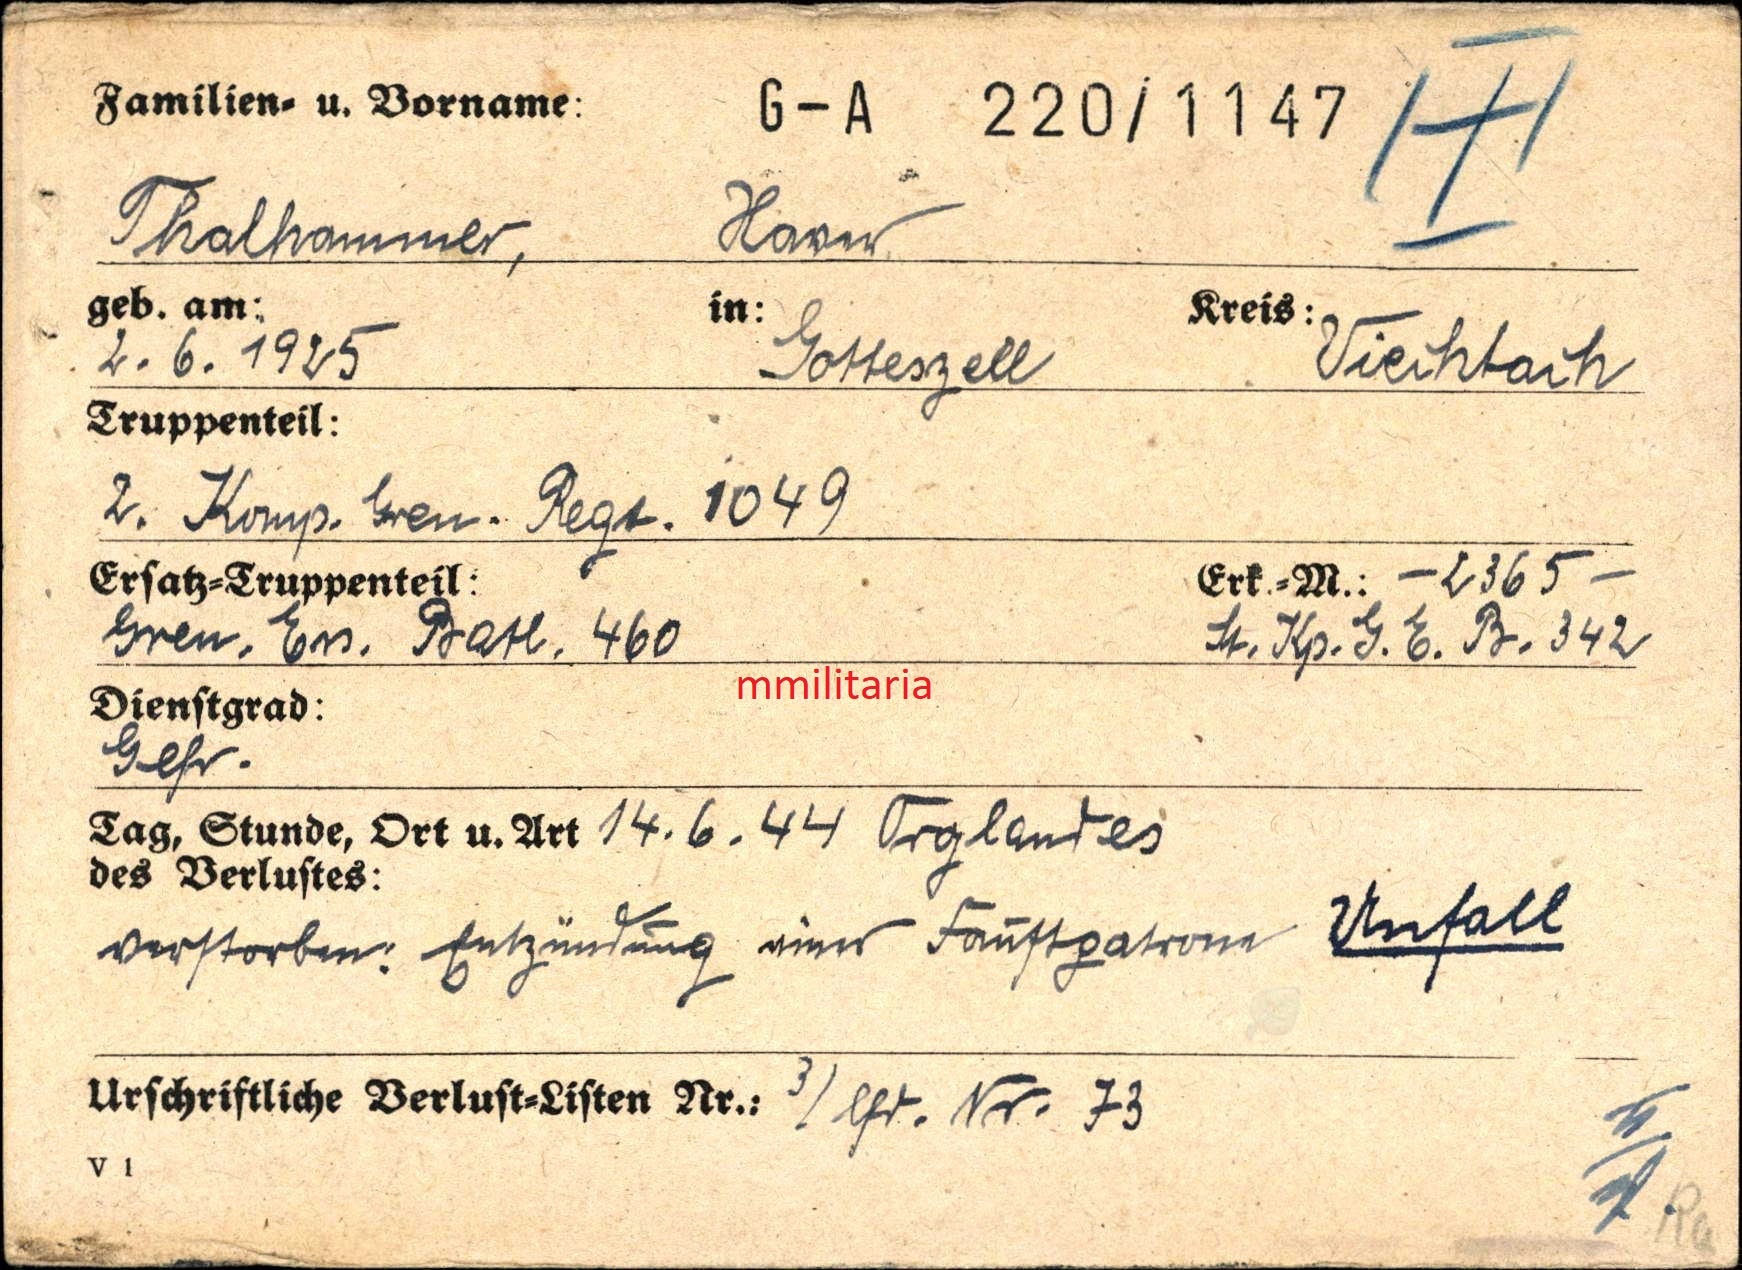 Familien- u. Vorname: G-A 220/1147
Thalhammer, Xaver
geb. am: in: Kreis:
2. 6. 1925 Gotteszell Viechtach
Truppenteil:
2. Komp. Gren. Regt. 1049
Ersatz-Truppenteil: Erk.-M.: - 2365 -
Gren. Ers. Batl. 460 St. Kp. G. E. B. 342
mmilitaria
Dienstgrad:
Gefr.
Tag, Stunde, Ort u. Art 14. 6. 44 Orglandes
des Verlustes:
verstorben: Entzündung einer Faustpatrone Unfall
Urschriftliche Verlust-Listen Nr.: 3/ lfd. Nr. 73
V 1
Ra